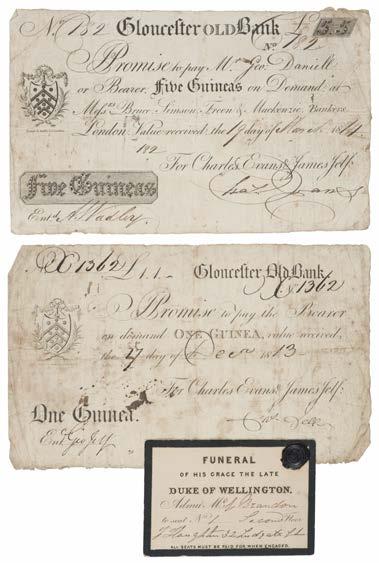 No 182 Gloucester OLD Bank £5"5
No 182
I Promise to pay Mr. Geo. Daniell
or Bearer, Five Guineas on Demand, at
Messrs Bruce, Simson, Freer & Mackenzie, Bankers
London Value received the 17 day of March 1814
182
For Charles, Evans & James Jelf:
Five Guineas
Chas. Evans
Entd. A. Wadley.
X1362 £1.1.- Gloucester Old Bank
X1362
I Promise to pay the Bearer
on demand ONE GUINEA, value received,
the 27 day of Decr 1813
For Charles, Evans & James Jelf:
One Guinea.
Entd. Geo Jelf
FUNERAL
OF HIS GRACE THE LATE
DUKE OF WELLINGTON.
Admit Mr Brandon
to seat No 7 Second Floor
32 Ludgate
ALL SEATS MUST BE PAID FOR WHEN ENGAGED.